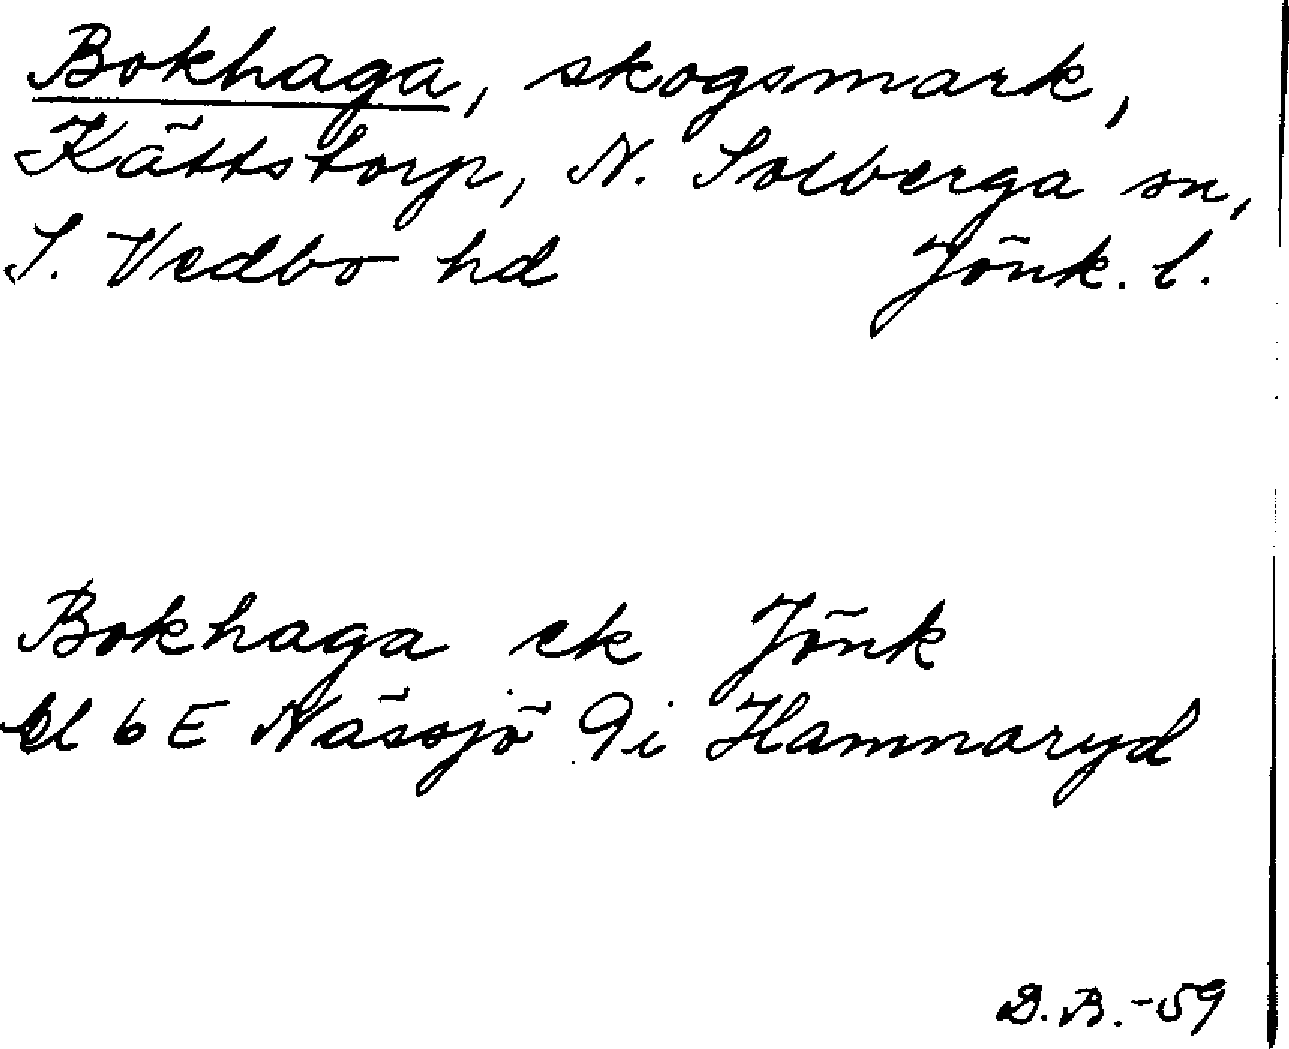 Bokhaga, skogsmark,
Kättstorp, N. Solberga sn,
S. Vedbo hd Jönk. l.
Bokhaga ek Jönk
bl 6 E Nässjö 9i Hamnaryd
D.B.-59